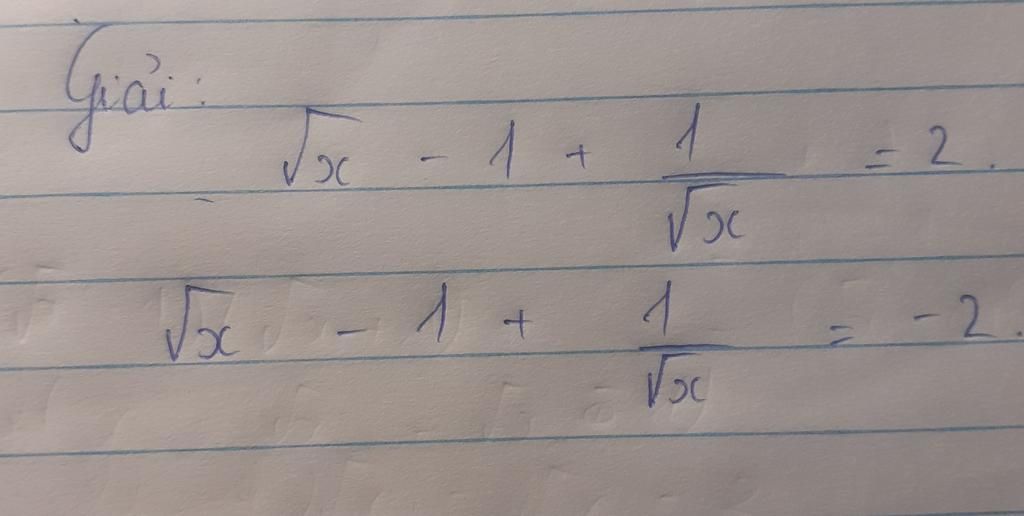 Giải:
√x - 1 + 1/√x = 2.
√x - 1 + 1/√x = -2.